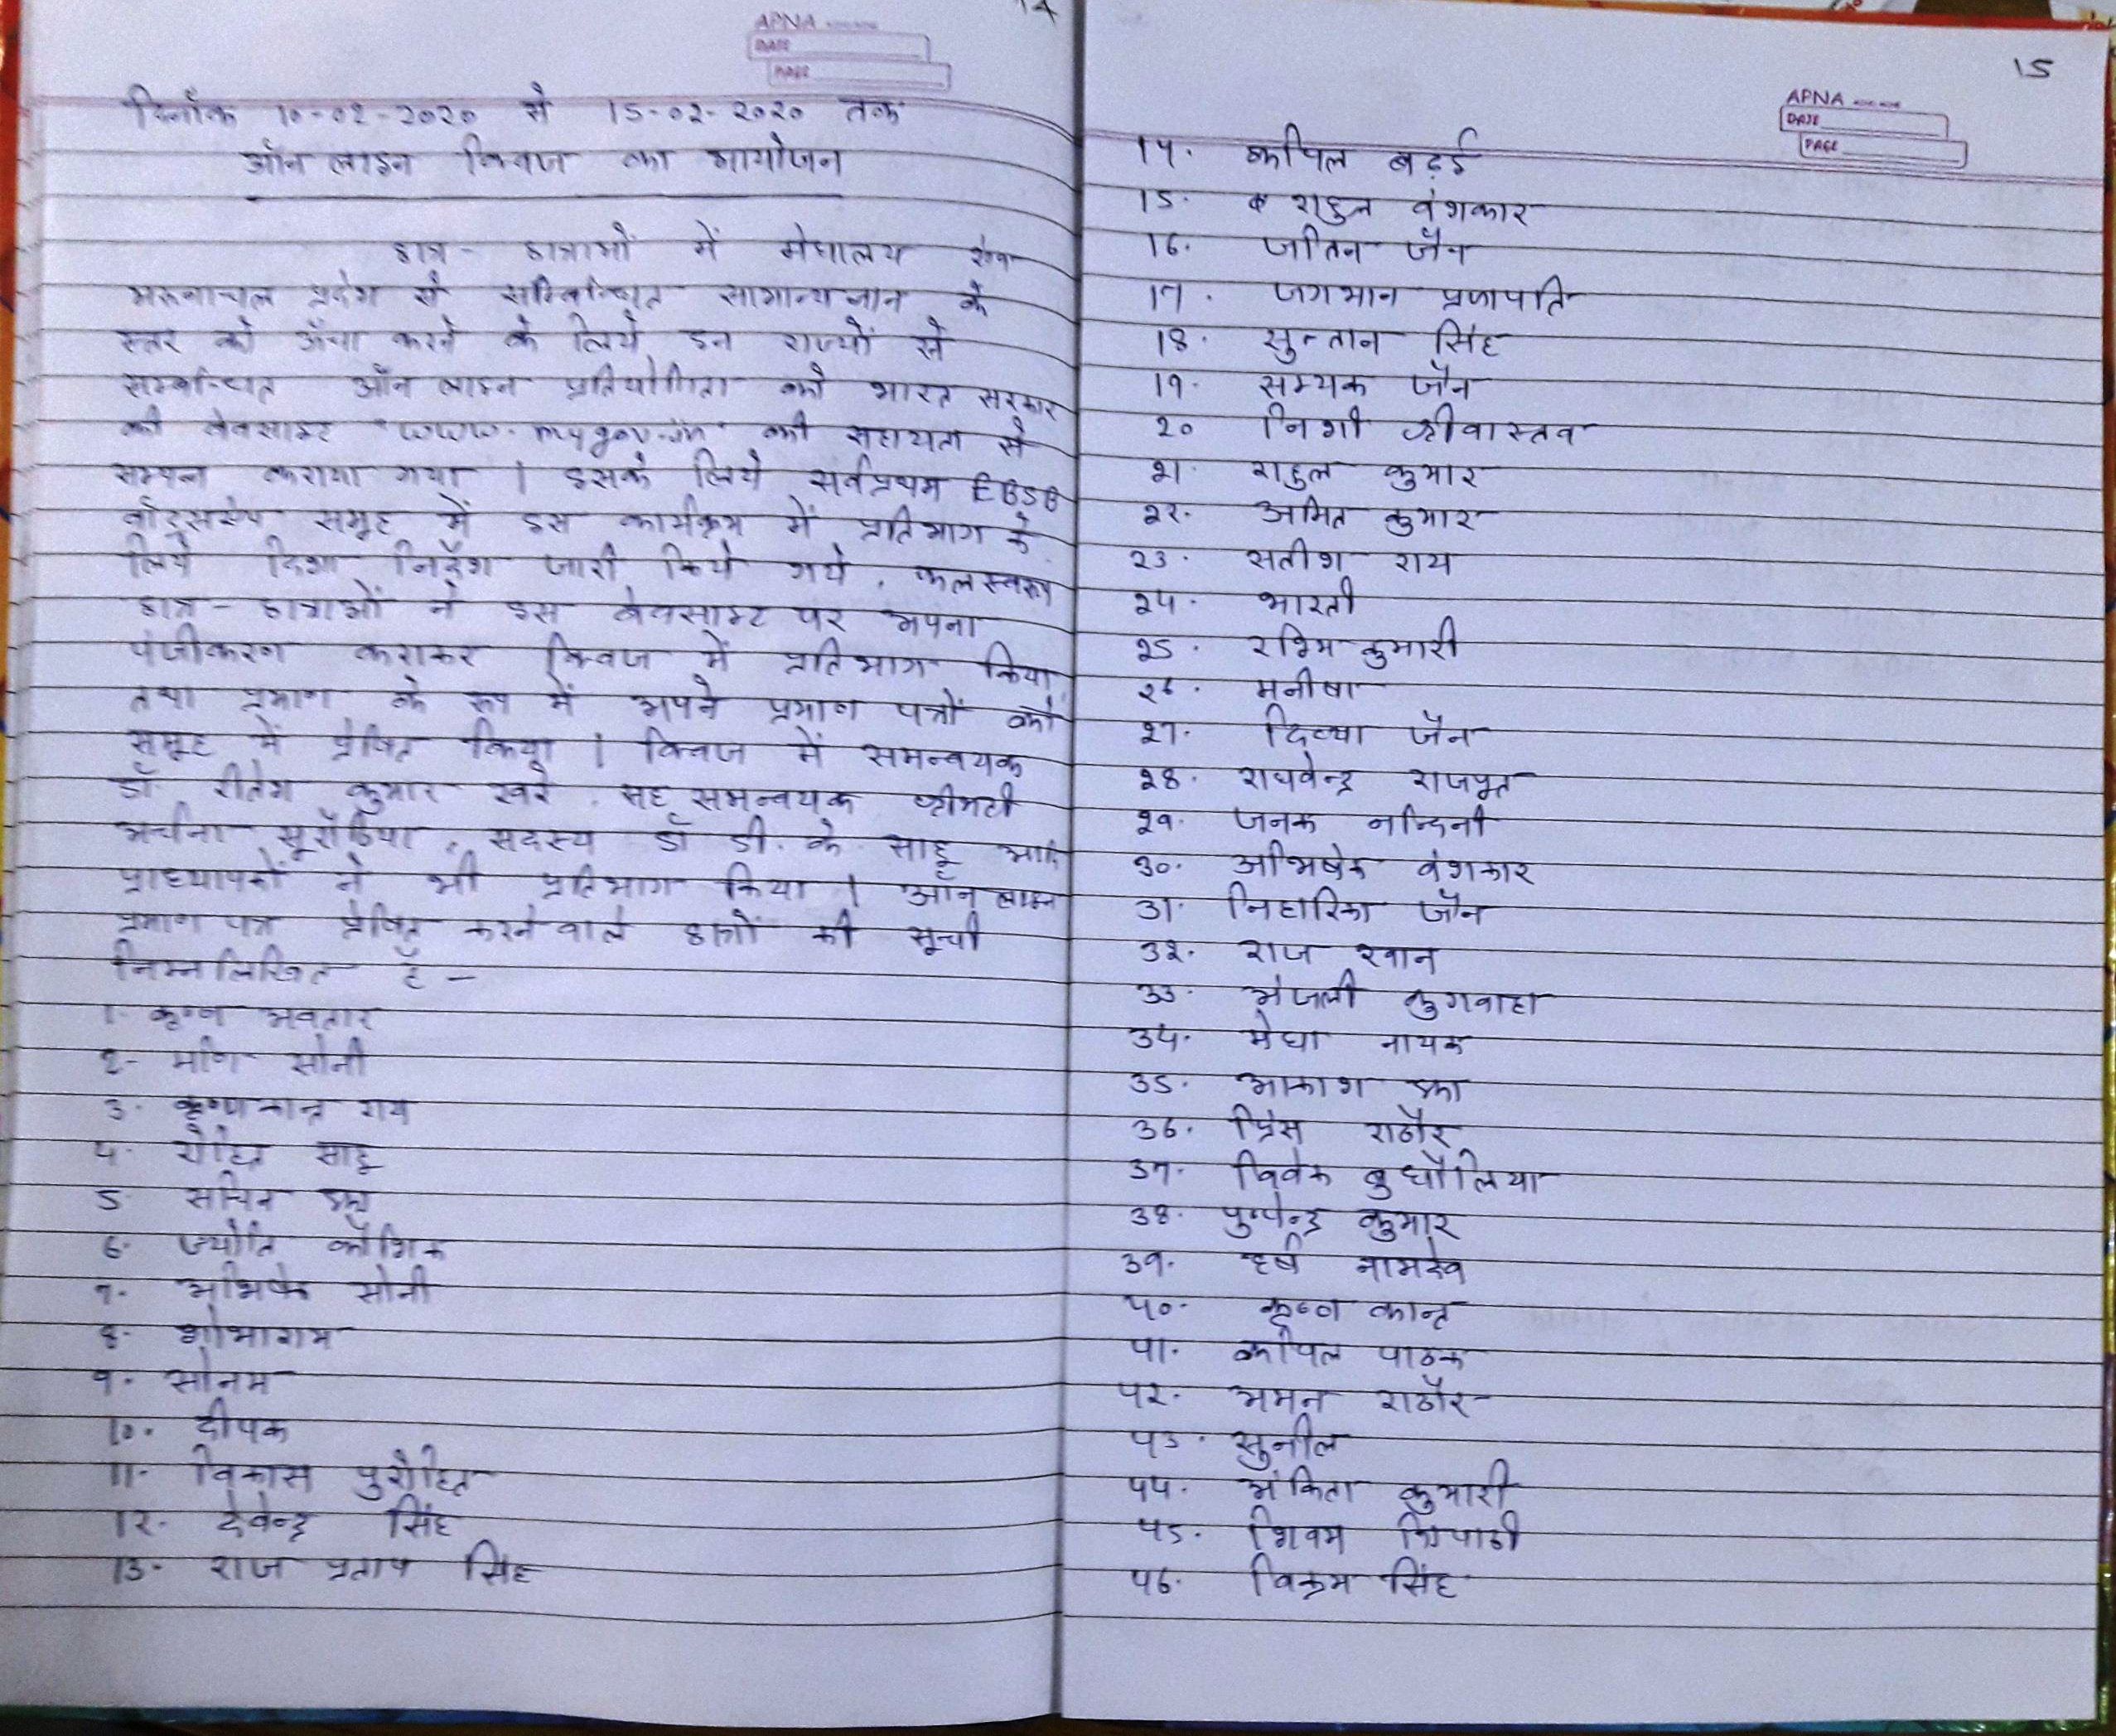 14
APNA
DATE
PAGE
दिनाँक 10-02-2020 से 15-02-2020 तक
ऑन लाइन क्विज का आयोजन
छात्र - छात्राओं में मेघालय एवं
अरूणाचल प्रदेश से सम्बन्धित सामान्य ज्ञान के
स्तर को ऊँचा करने के लिये इन राज्यों से
सम्बन्धित ऑन लाइन प्रतियोगिता को भारत सरकार
की वेवसाइट "www.mygov.in" की सहायता से
सम्पन्न कराया गया । इसके लिये सर्वप्रथम EBSB
वॉट्सएप समूह में इस कार्यक्रम में प्रतिभाग के
लिये दिशा निर्देश जारी किये गये, फलस्वरूप
छात्र - छात्राओं ने इस वेवसाइट पर अपना
पंजीकरण कराकर क्विज में प्रतिभाग किया
तथा प्रमाण के रूप में अपने प्रमाण पत्रों को
समूह में प्रेषित किया । क्विज में समन्वयक
डॉ. रीतेश कुमार खरे, सह समन्वयक श्रीमती
अर्चना सूरौठिया, सदस्य डॉ डी. के. साहू आदि
प्राध्यापकों ने भी प्रतिभाग किया । ऑन लाइन
प्रमाण पत्र प्रेषित करने वाले छात्रों की सूची
निम्नलिखित है -
1. कृष्ण अवतार
2- मणि सोनी
3. कृष्णकान्त राय
4. रोहित साहू
5 सचिन झा
6. ज्योति कौशिक
7. अभिषेक सोनी
8. शोभाराम
9. सोनम
10. दीपक
11- विकास पुरोहित
12. देवेन्द्र सिंह
13. राज प्रताप सिंह
15
APNA
DATE
PAGE
14. कपिल बढ़ई
15. राहुल वंशकार
16. जतिन जैन
17. जगभान प्रजापति
18. सुल्तान सिंह
19. सम्यक जैन
20 निशी श्रीवास्तव
21. राहुल कुमार
22. अमित कुमार
23. सतीश राय
24. भारती
25. रश्मि कुमारी
26. मनीषा
27. दिव्या जैन
28. राघवेन्द्र राजपूत
29. जनक नन्दिनी
30. अभिषेक वंशकार
31. निहारिका जैन
32. राज खान
33. अंजली कुशवाहा
34. मेघा नायक
35. आकाश झा
36. प्रिंस राठौर
37. विवेक बुधौलिया
38. पुष्पेन्द्र कुमार
39. हर्ष नामदेव
40. कृष्ण कान्त
41. कपिल पाठक
42. अमन राठौर
43. सुनील
44. अंकिता कुमारी
45. शिवम त्रिपाठी
46. विक्रम सिंह